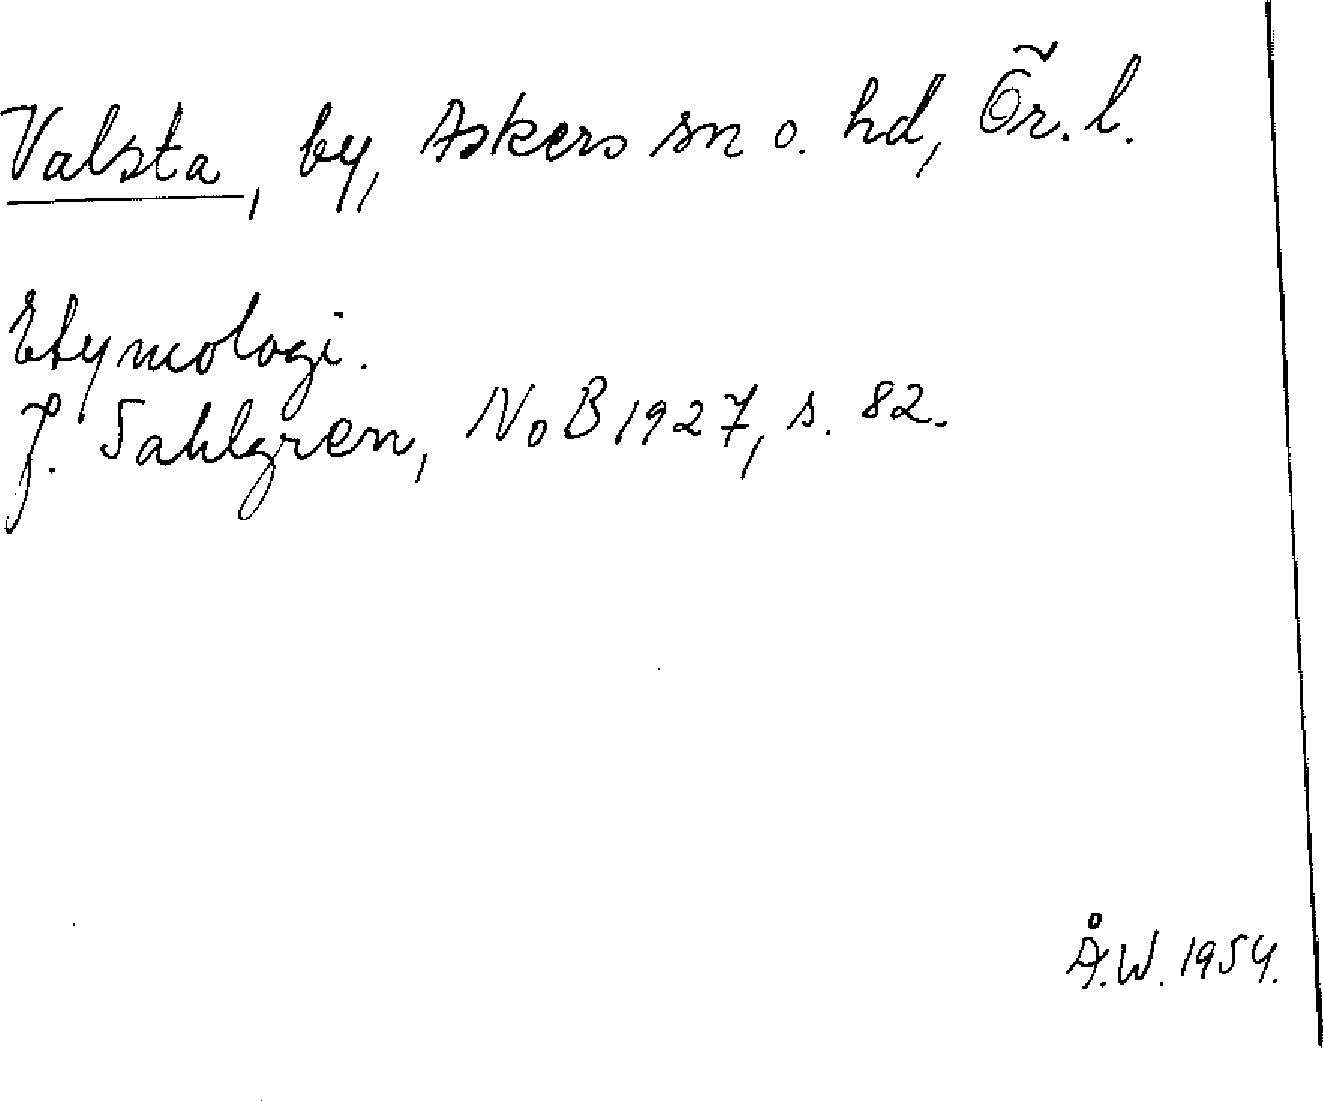 Valsta, by, Askers sn o. hd, Ör. l.
Etymologi.
J. Sahlgren, NoB 1927, s. 82.
Å.W. 1954.